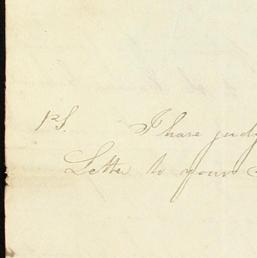 PS. I have judg
Letter to your